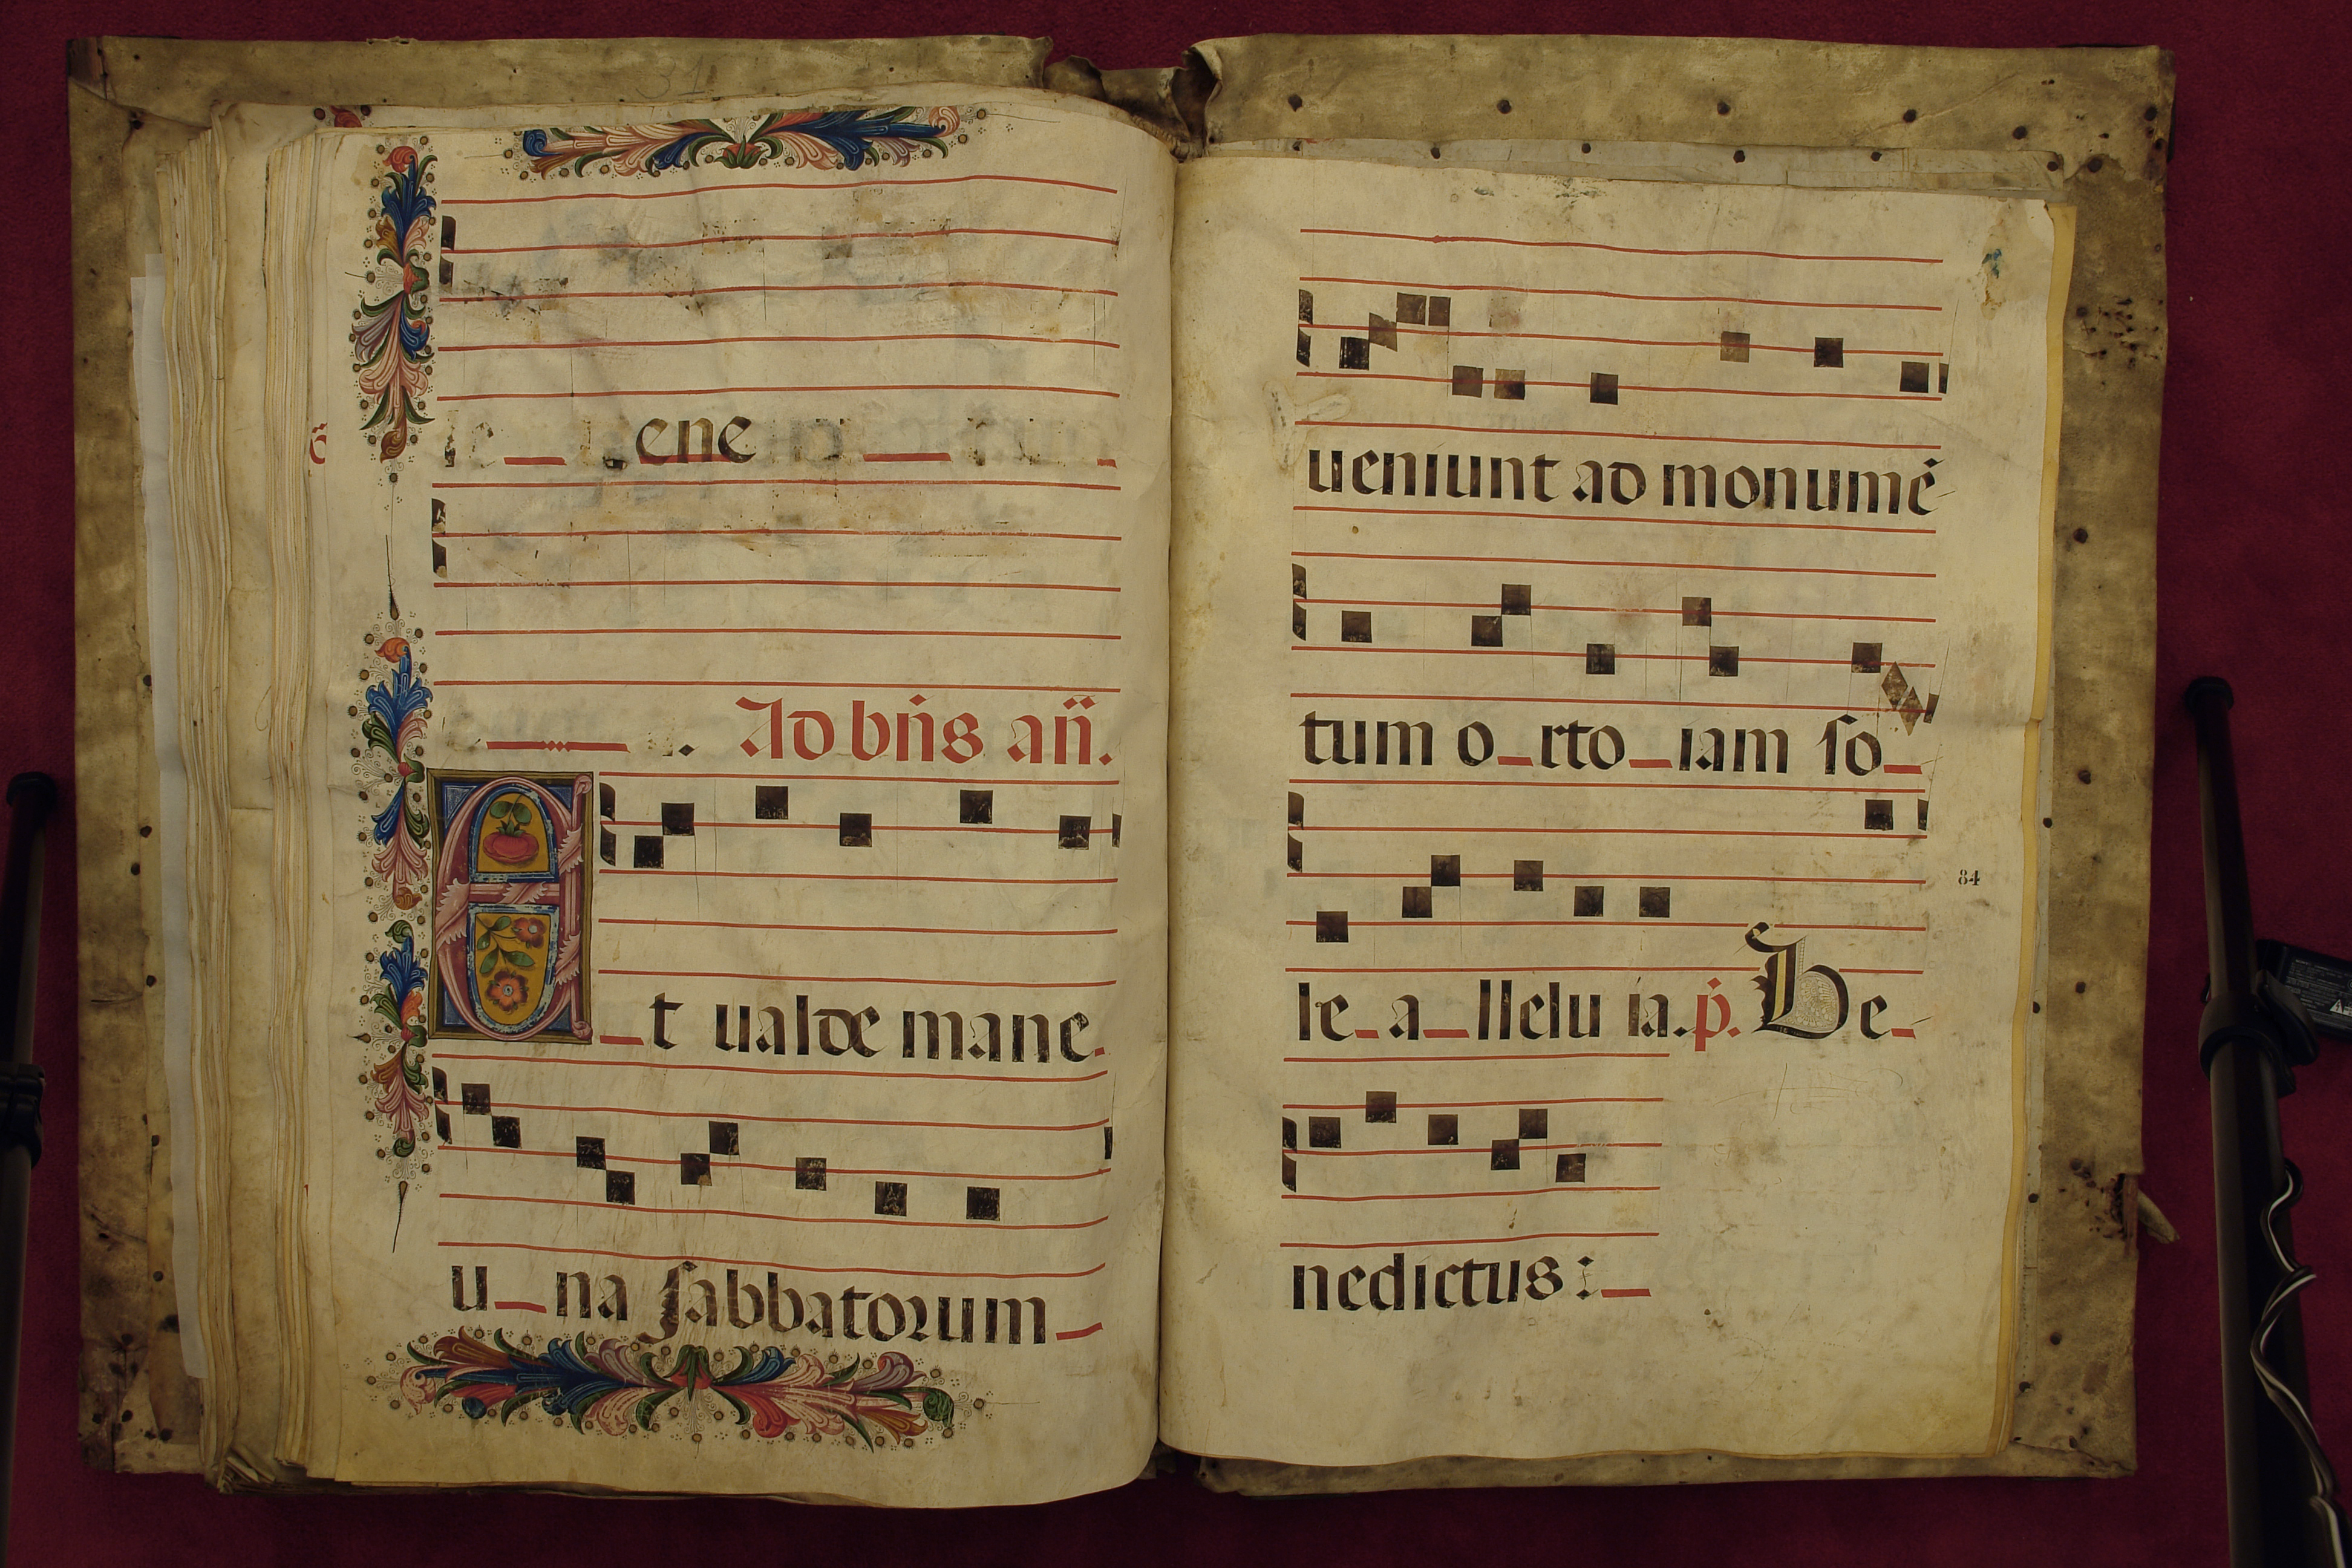 ene
Ad bn̄s an̄.
Et ualde mane
u_na sabbatorum
ueniunt ad monumē
tum o_rto_iam so_
84
le_a_llelu ia. p̄. Be_
nedictus: